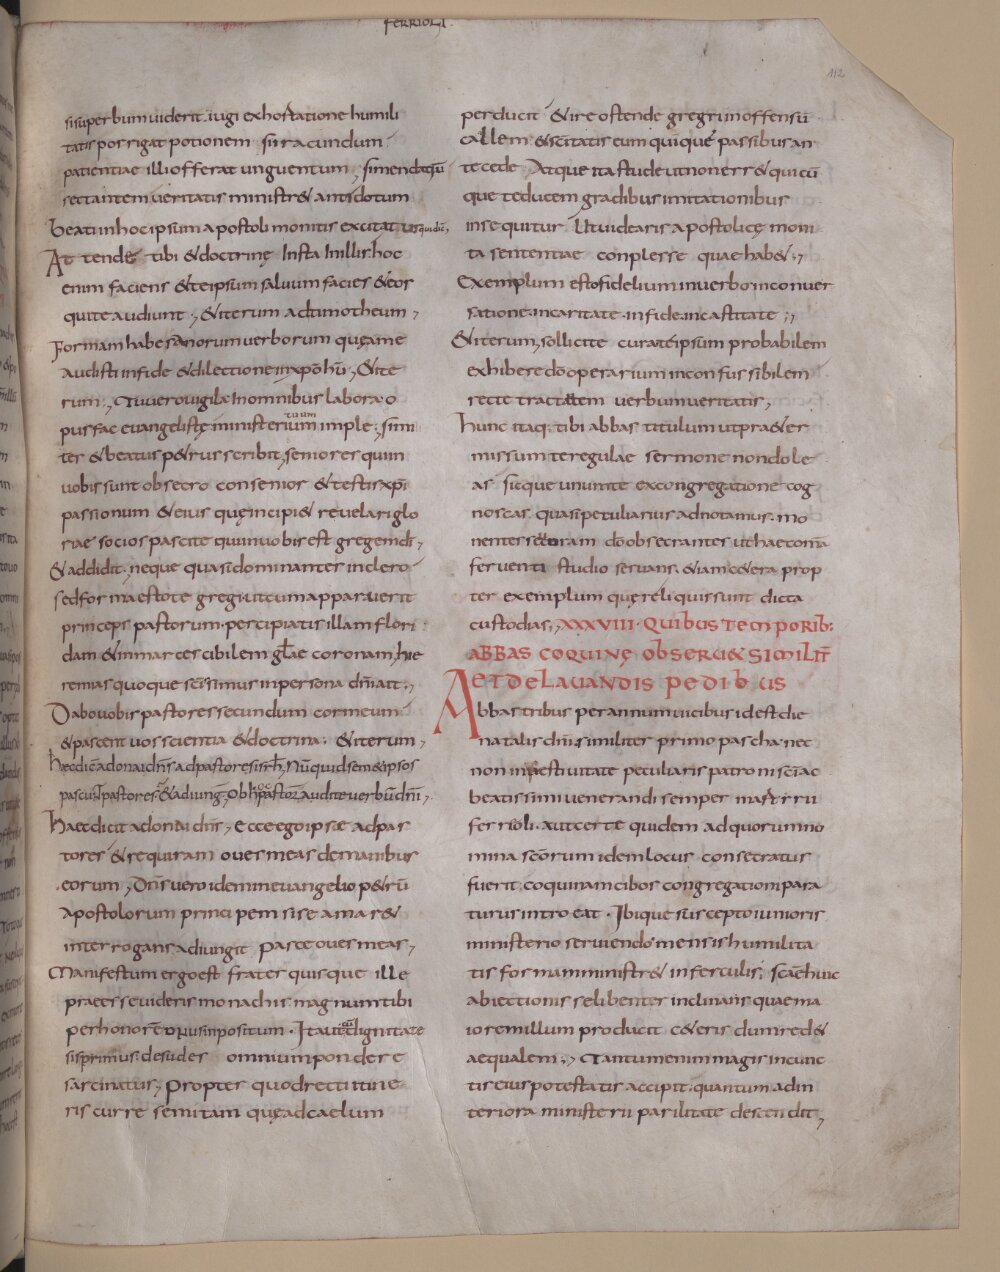 FERRIOLI.
112
si superbum uiderit. iugi exhortatione humili
tatis porrigat potionem. si iracundum
patientiae illi offerat unguentum, si mendatiū
sectantem ueritatis ministr& antidotum
beati in hoc ipsum apostoli monitis excitatus
Attende tibi & doctrinę Insta In illis hoc
enim faciens & teipsum saluum facies & eos
qui te audiunt, & iterum ad timotheum,
Formam habe sanorum uerborum quę a me
audisti in fide & dilectione in xpō ihū, & ite
rum, Tu uero uigila In omnibus labora o
pus fac euangelistę ministerium tuum imple, simi
liter & beatus p&rus scribit, seniores qui in
uobis sunt obsecro consenior & testis xpi
passionum & eius quę incipi& reuelari glo
riae socios pascite qui in uobis est gregem dī,
& addidit, neque quasi dominantes in clero
sed forma estote gregi ut cum apparuerit
princeps pastorum. percipiatis illam flori
dam & inmarcescibilem glae coronam, hie
remias quoque scissimus in persona dni ait,
Dabo uobis pastores secundum cor meum
& pascent uos scientia & doctrina. & iterum,
haec dic adonai dns ad pastores isrl,
haec dicit adonai dns, ecce ego ipse ad pas
tores & requiram oues meas de manibus
eorum, Dns uero idem in euangelio p&rū
apostolorum principem si se amar&
interrogans adiungit pasce oues meas,
Manifestum ergo est frater quisque ille
praeesse uideris monachis magnum tibi
per honorē opus inpositum. Ita ut dignitate
sis primus. desudes omnium pondere
sarcinatus, propter quod recti itine
ris curre semitam quę ad caelum
perducit & ire ostende gregi inoffensū
callem. & scitatis eum quinque passibus an
tecede Atque ita stude ut non err& qui cū
que te ducem gradibus imitationibus
insequitur Ut uidearis apostolicę moni
ta sententiae conplesse quae hab&,
Exemplum esto fidelium in uerbo in conuer
satione. in caritate. in fide. in castitate,
& iterum, sollicite cura teipsum probabilem
exhibere dō operarium inconfusibilem
recte tractantem uerbum ueritatis,
hunc itaq. tibi abbas titulum ut praeter
missum te regulae sermone non dole
as sicque unum te ex congregatione cog
noscas. quasi peculiarius adnotamus. mo
nentes et coram dō obsecrantes ut haec omā
feruenti studio seruans. &iam c&era prop
ter exemplum quę reliqui sunt dicta
custodias, XXXVIII. QUIBUS TEMPORIB:
ABBAS COQUINĘ OBSERU& SIMILIT
ET DE LAUANDIS PEDIBUS
Abbas tribus per annum uicibus id est die
natalis dni similiter primo pascha. nec
non in festiuitate peculiaris patroni sci ac
beatissimi uenerandi semper martyrii
ferrioli. aut certe quidem ad quorum no
mina scōrum idem locus consecratus
fuerit. coquinam cibos congregationi para
turus introeat. Ibique suscepto iunioris
ministerio seruiendo mensis humilita
tis formam ministr& in ferculis, sca&huic
abiectionis se libenter inclinans quae ma
iorem illum producit c&eris dum red&
aequalem, Tantum enim magis in cunc
tis eius potestatis accipit. quantum ad in
teriora ministerii parilitate descendit,